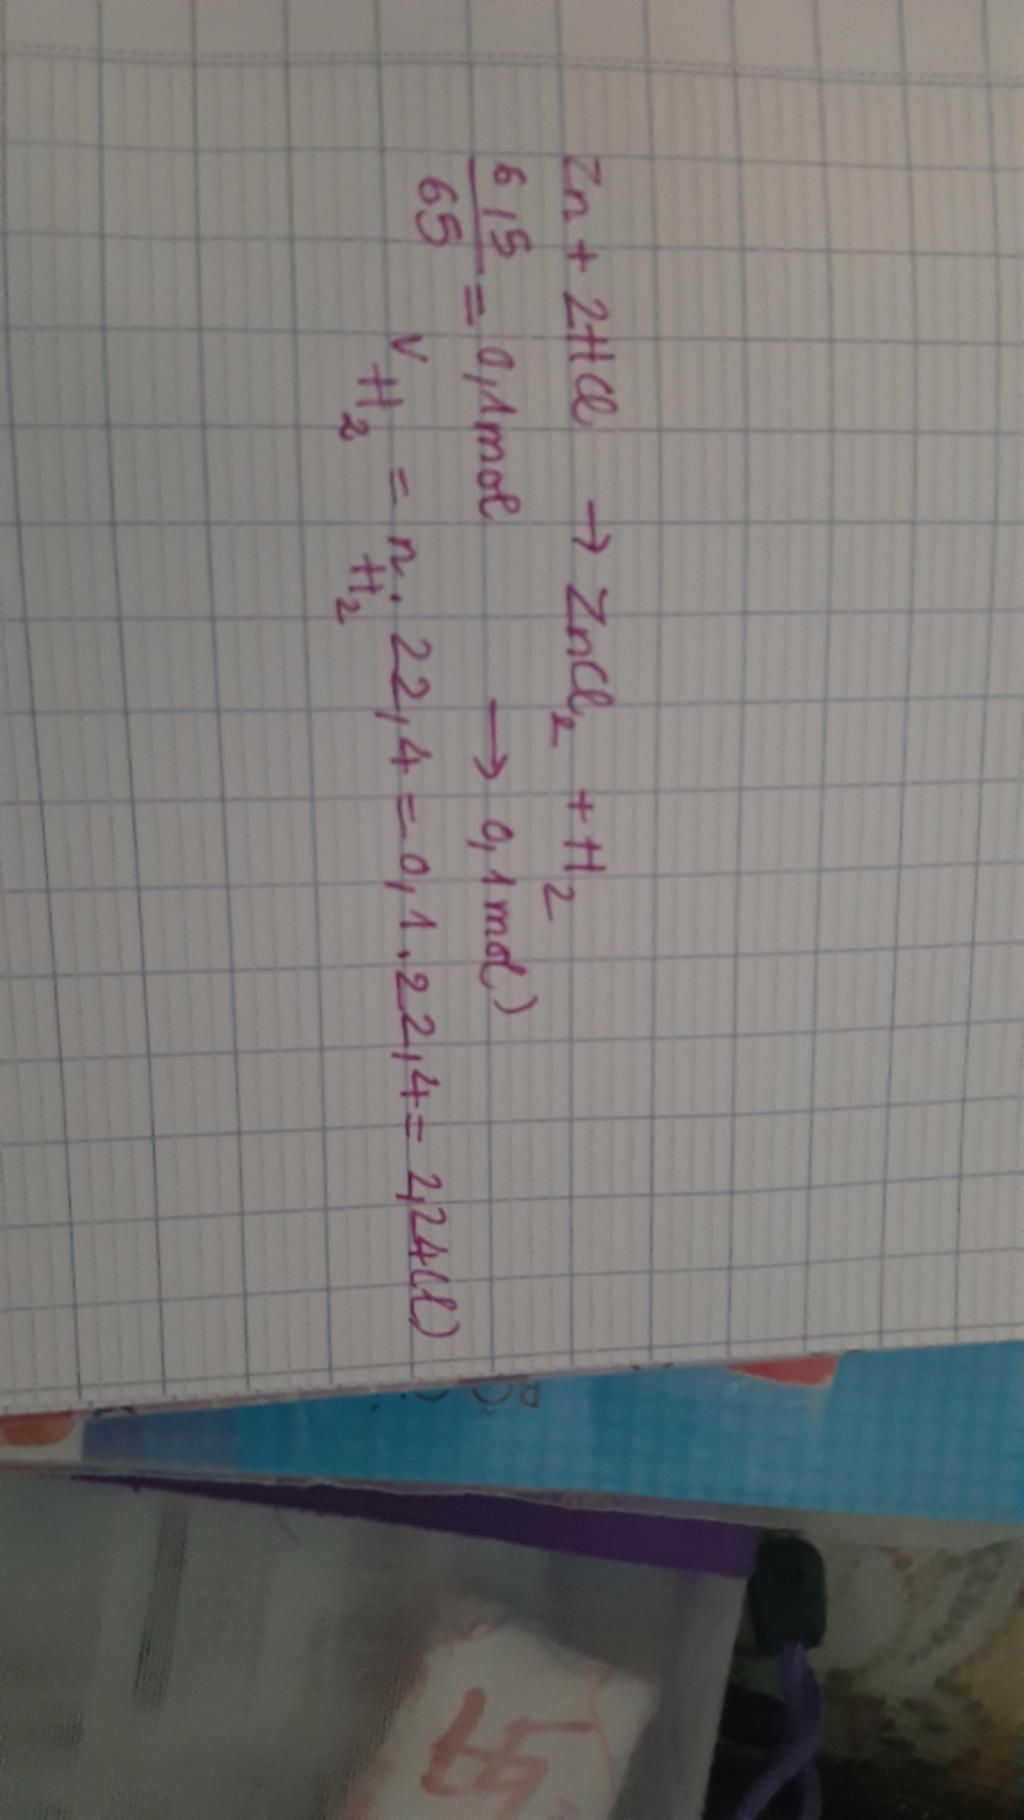 Zn + 2HCl → ZnCl₂ + H₂
6,5/65 = 0,1mol → 0,1mol)
V H₂ = n H₂ . 22,4 = 0,1 . 22,4 = 2,24(l)